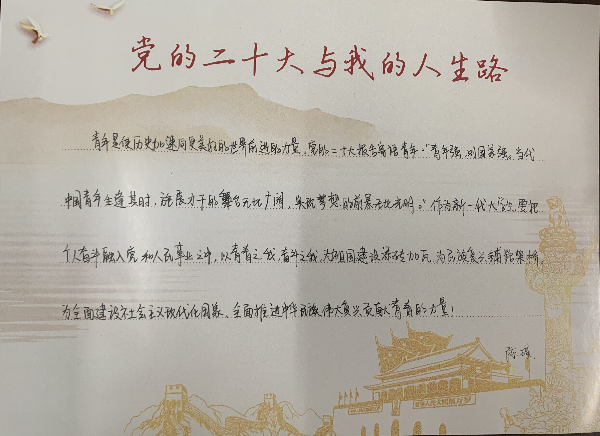 党的二十大与我的人生路
青年是使历史加速向更美好的世界前进的力量,党的二十大报告寄语青年:“青年强,则国家强。当代
中国青年生逢其时,施展才干的舞台无比广阔,实现梦想的前景无比光明。”作为新一代大学生,要把
个人奋斗融入党和人民事业之中,以青春之我,奋斗之我,为祖国建设添砖加瓦,为民族复兴铺路架桥,
为全面建设社会主义现代化国家、全面推进中华民族伟大复兴贡献青春的力量!
陈